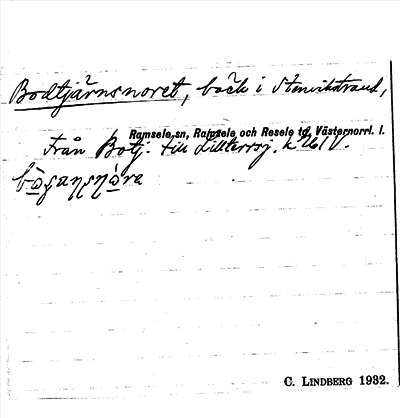 Bodtjärnsnoret, bäck i Stenvikstrand,
Ramsele sn, Ramsele och Resele td, Västernorrl. l.
Från Botj. till Lillterrsj. k
C. LINDBERG 1932.